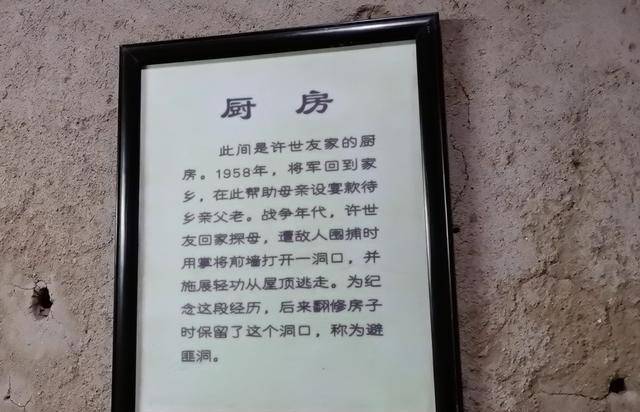 厨 房
此间是许世友家的厨
房。1958年，将军回到家
乡，在此帮助母亲设宴款待
乡亲父老。战争年代，许世
友回家探母，遭敌人围捕时
用掌将前墙打开一洞口，并
施展轻功从屋顶逃走。为纪
念这段经历，后来翻修房子
时保留了这个洞口，称为避
匪洞。